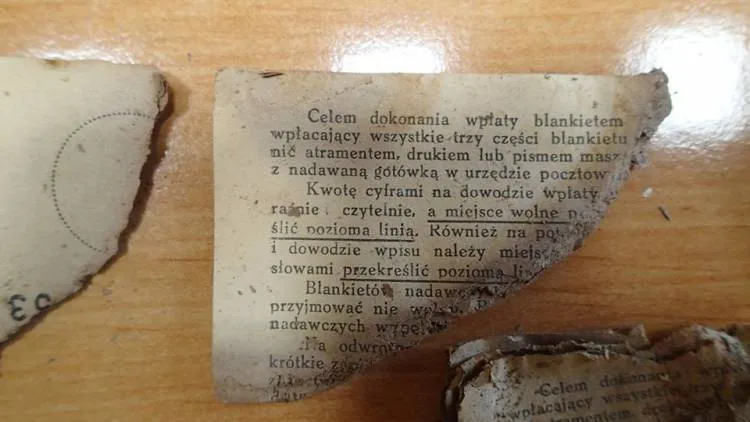 Celem dokonania wpłaty blankietem
wpłacający wszystkie trzy części blankietu
nić atramentem, drukiem lub pismem masz
z nadawaną gotówką w urzędzie pocztow
Kwotę cyframi na dowodzie wpłaty
raźnie i czytelnie, a miejsce wolne p
ślić poziomą linią. Również na po
i dowodzie wpisu należy miejs
słowami przekreślić poziomą li
Blankietów nadawczy
przyjmować nie
nadawczych
Na odwro
krótkie
53
Celem dokonania
wpłacający wszystkie
atramentem,